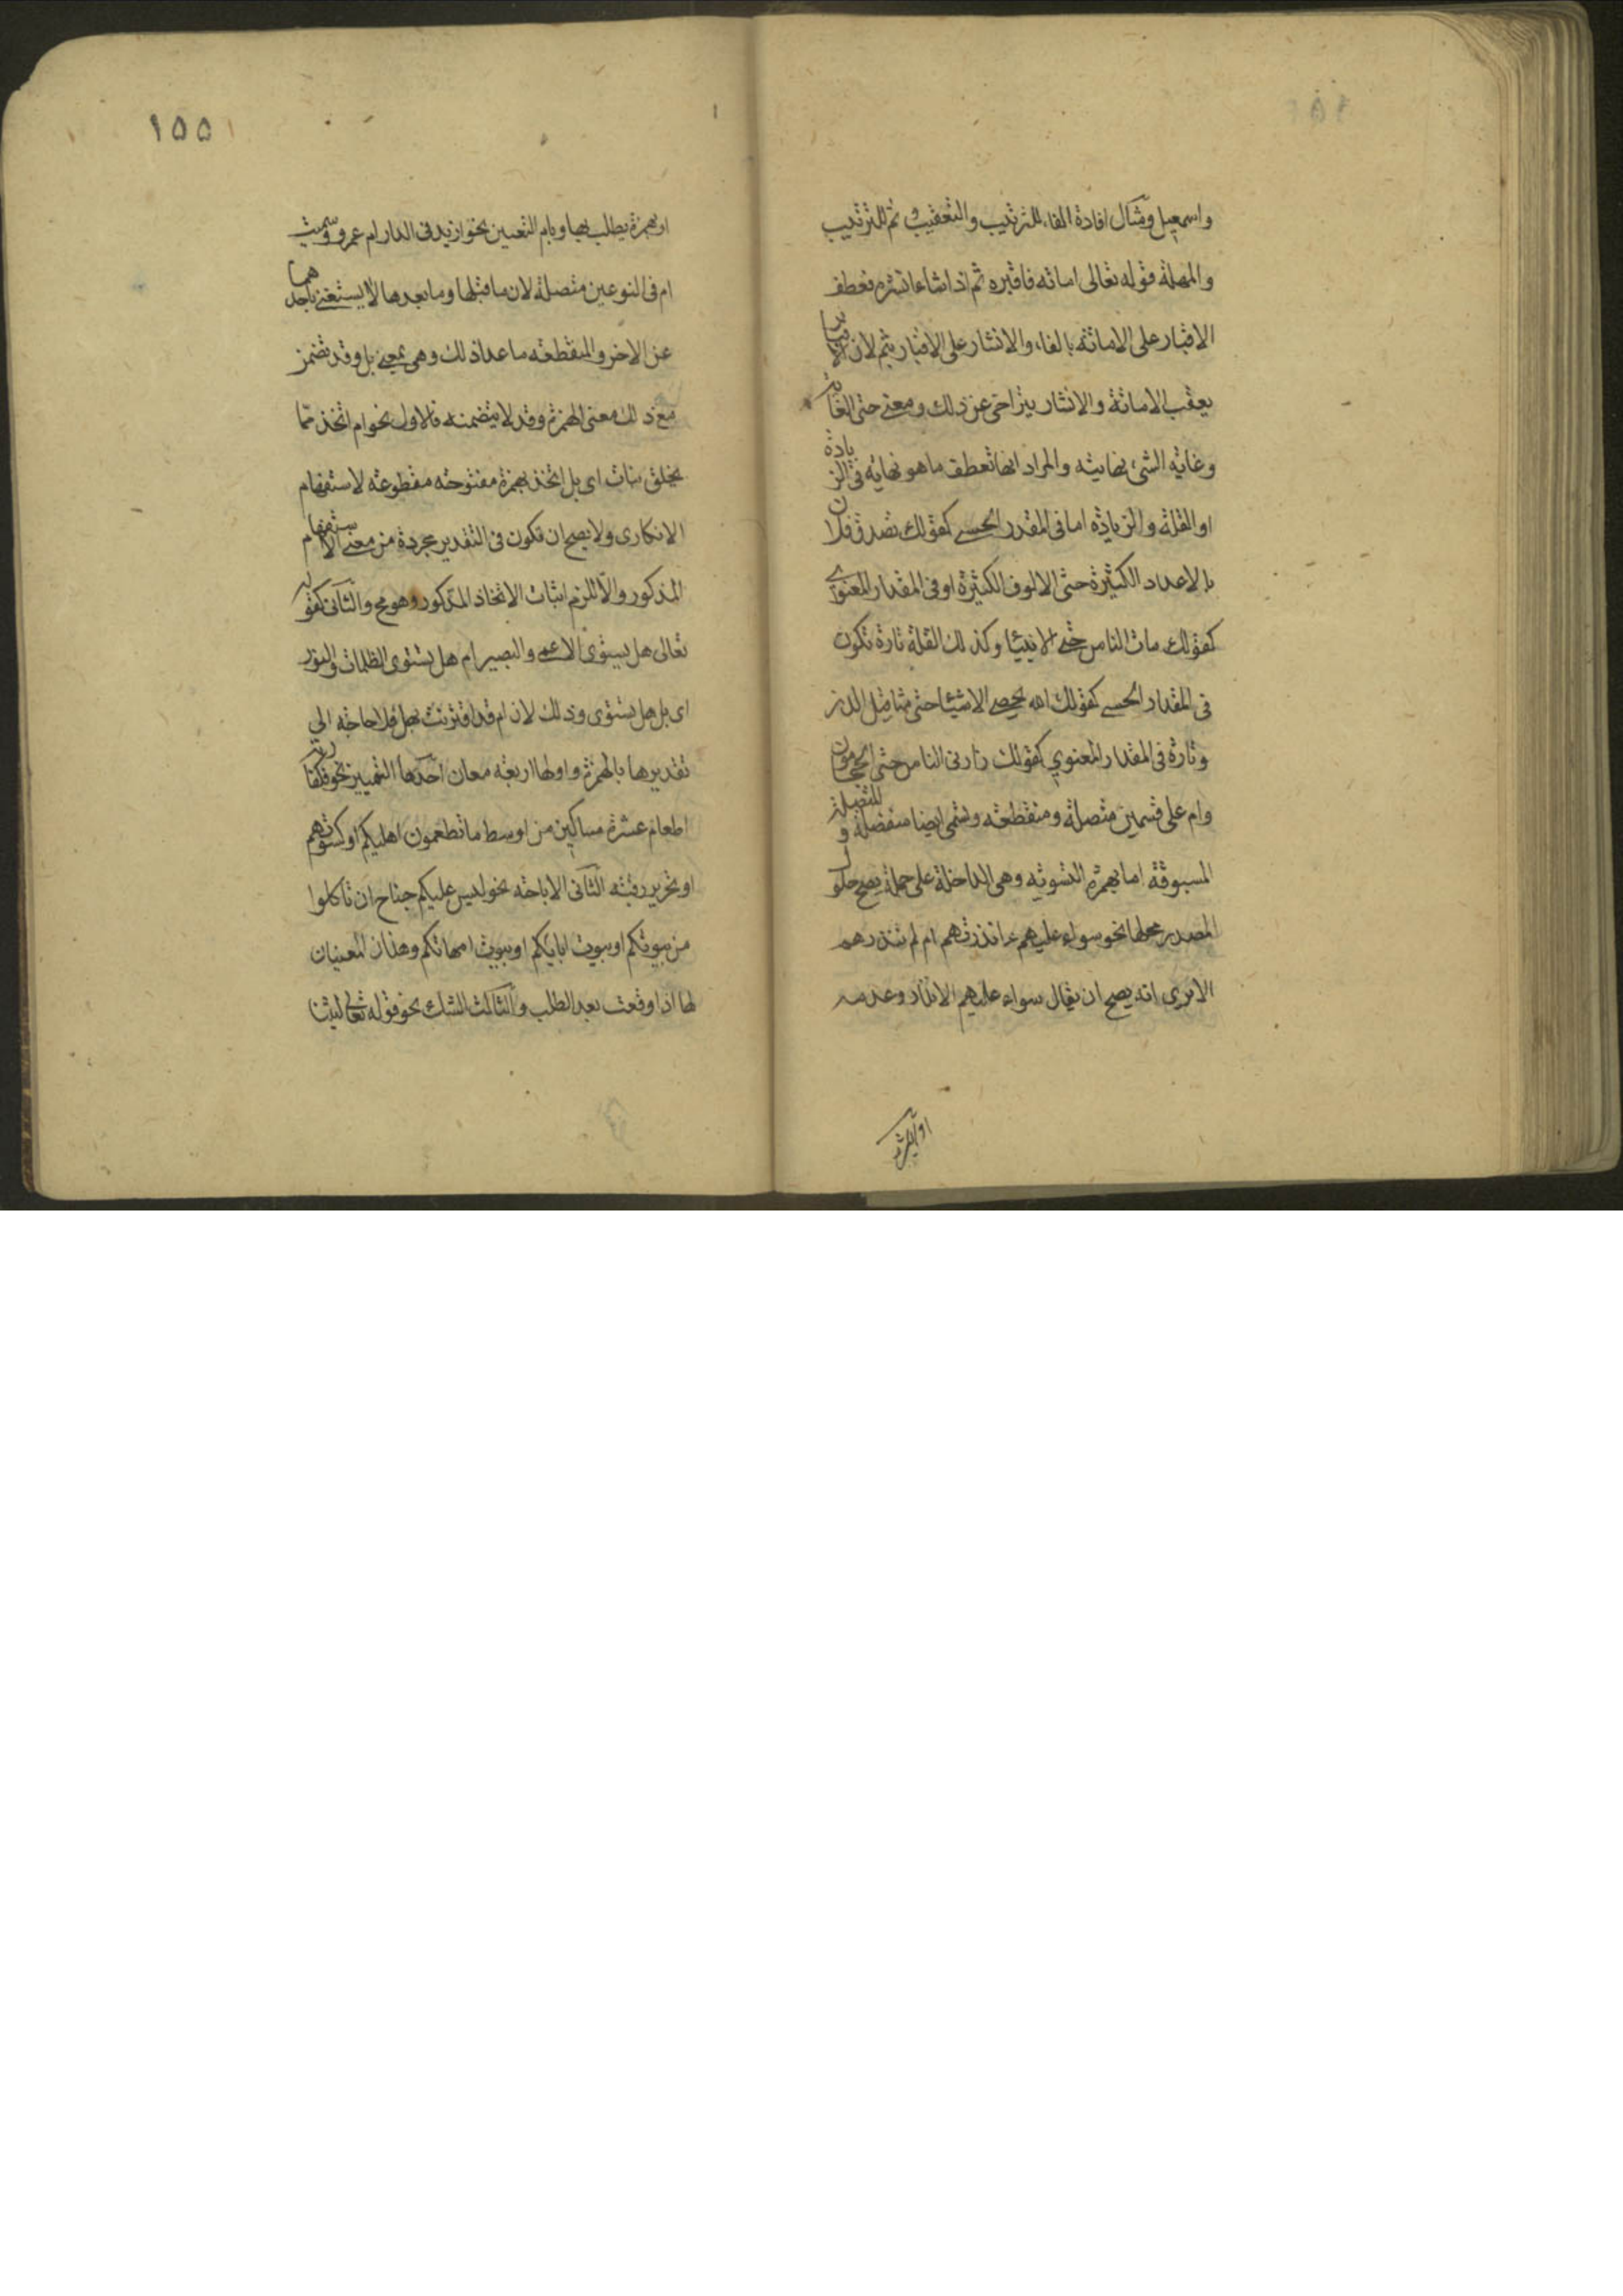 واسمعيل ومثال افادة الفاء للترتيب والتعقيب وثم للترتيب
والمهلة قوله تعالى اماته فاقبره ثم اذا شاء انشره فعطف
الاقبار على الاماتة بالفاء والانشار على الاقبار بثم لان الاقبار
يعقب الاماتة والانشار يتراخى عن ذلك ومعنى حتى الغاية
وغاية الشىء نهايته والمراد انها تعطف ما هو نهاية فى الزيادة
او القلة والزيادة اما فى المقدر الحسى كقولك تصدق فلان
بالاعداد الكثيرة حتى الالوف الكثيرة او فى المقدار المعنوى
كقولك مات الناس حتى الانبيا وكذلك القلة تارة تكون
فى المقدار الحسى كقولك الله يحصى الاشيئا حتى مثاقيل الذر
وتارة فى المقدار المعنوي كقولك زارنى الناس حتى الحجامون
وام على قسمين متصلة ومنقطعة وتسمى ايضا منفصلة و المتصلة
المسبوقة اما بهمزه التسوية وهى الداخلة على جملة يصح حلول
المصدر محلها نحو سواء عليهم ءانذرتهم ام لم تنذرهم
الا ترى انه يصح ان يقال سواء عليهم الانذار وعدمه
او بهمزة
١٥٥
او بهمزة يطلب بها وبام التعيين نحو ازيد فى الدار ام عمرو وسميت
ام فى النوعين متصلة لان ما قبلها وما بعدها لا يستغنى باحدهما
عن الاخر والمنقطعة ما عدا ذلك وهى بمعنى بل وقد تضمن
مع ذلك معنى الهمزة وقد لا يتضمنه فالاول نحو ام اتخذ مما
يخلق بنات اى بل اتخذ بهمزة مفتوحة مقطوعة لاستفهام
الانكارى ولا يصح ان تكون فى التقدير مجردة من معنى الاستفهام
المذكور والا للزم اثبات الاتخاذ المذكور وهو مح والثانى كقوله
تعالى هل يستوى الاعمى والبصير ام هل يستوى الظلمات والنور
اى بل هل يستوى وذلك لان ام قد اقترنت بهل فلا حاجة الي
تقديرها بالهمزة واولها اربعة معان احدها التخيير نحو فكفارته
اطعام عشرة مساكين من اوسط ما تطعمون اهليكم او كسوتهم
او تحرير رقبة الثانى الاباحة نحو ليس عليكم جناح ان تاكلوا
من بيوتكم او بيوت ابايكم او بيوت امهاتكم وهذان المعنيان
لها اذا وقعت بعد الطلب والثالث الشك نحو قوله تعالى لبثنا